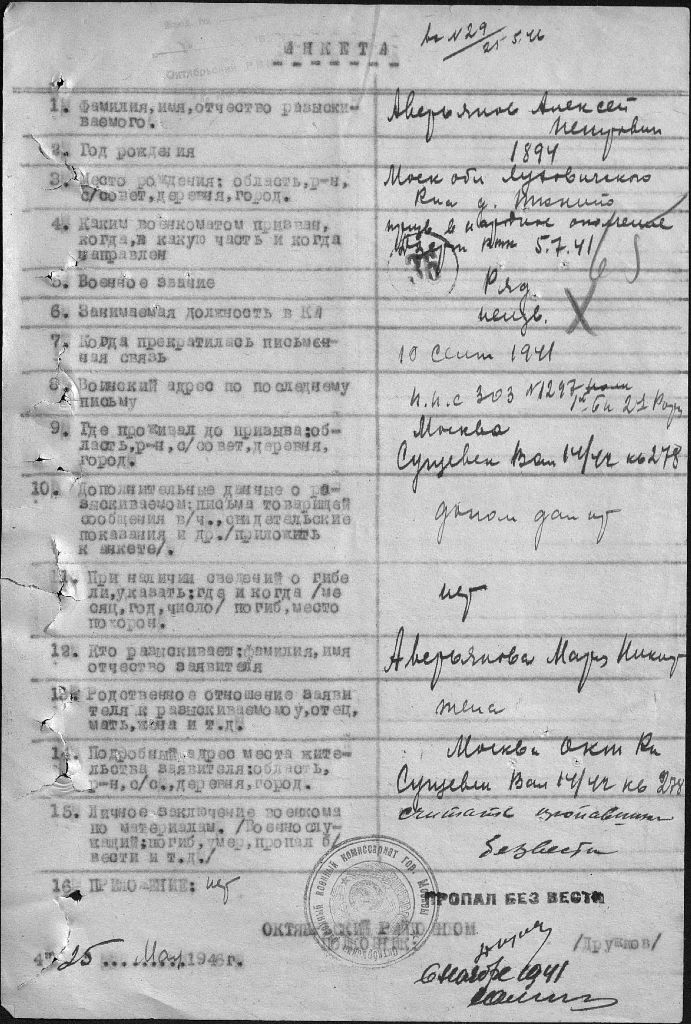 вх N 29
25-5.46
АНКЕТА
1. Фамилия, имя, отчество разыски-
ваемого.
Аверьянов Алексей
Петрович
2. Год рождения
1894
3. Место рождения: область, р-н,
с/совет, деревня, город.
Моск обл Луховичского
Р-на д.
4. Каким военкоматом призван,
когда, в какую часть и когда
направлен
призв в народное ополчение
РВК 5.7.41
36
5. Военное звание
Ряд.
6. Занимаемая должность в КА
неизв.
7. Когда прекратилась письмен-
ная связь
10 сент 1941
8. Воинский адрес по последнему
письму
п.п.с 303 N1297 полк
1й бн 21 Рота
9. Где проживал до призыва: об-
ласть, р-н, с/совет, деревня,
город.
Москва
Сущевск Вал 14/42 кв 278
10. Дополнительные данные о ра-
зыскиваемом: письма товарищей
сообщения в/ч., свидетельские
показания и др. /приложить
к анкете/.
дополн дан нет
11. При наличии сведений о гибе
ли, указать: где и когда /ме
сяц, год, число/ погиб, место
похорон.
нет
12. Кто разыскивает: фамилия, имя
отчество заявителя
Аверьянова Мария Никит
13. Родственное отношение заяви
теля к разыскиваемомоу, отец,
мать, жена и т.д.
жена
14. Подробный адрес места жите-
льства заявителя: область,
р-н, с/с., деревня, город.
Москва Окт Рн
Сущевск Вал 14/42 кв 278
15. Личное заключение военкома
по материалам. /Военнослу-
жащий: погиб, умер, пропал б/
вести и т.д./
считать пропавшим
безвести
16. ПРИЛОЖЕНИЕ: нет
ПРОПАЛ БЕЗ ВЕСТИ
ОКТЯБРЬСКИЙ РАЙВОЕНКОМ
ПОЛКОВНИК:
/Дружков/
"25" Мая 1946г.
ноября 1941